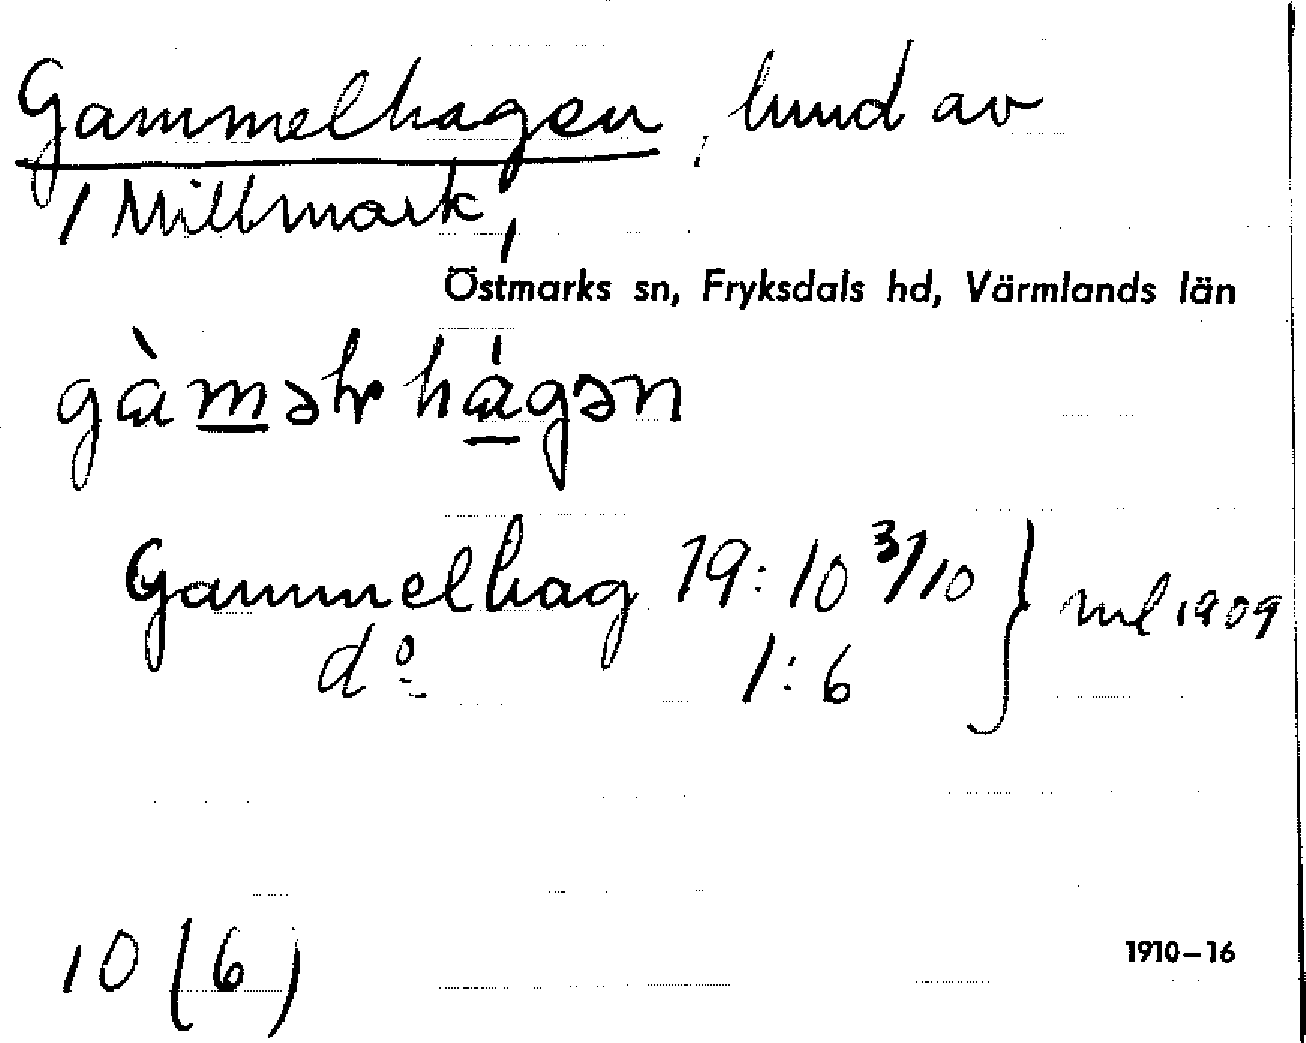 Gammelhagen, lund av
1 Millmark,
Östmarks sn, Fryksdals hd, Värmlands län
gàmər hágən
Gammelhag 19:10 3/10 } ml 1909
do 1:6
10 (6)
1910–16